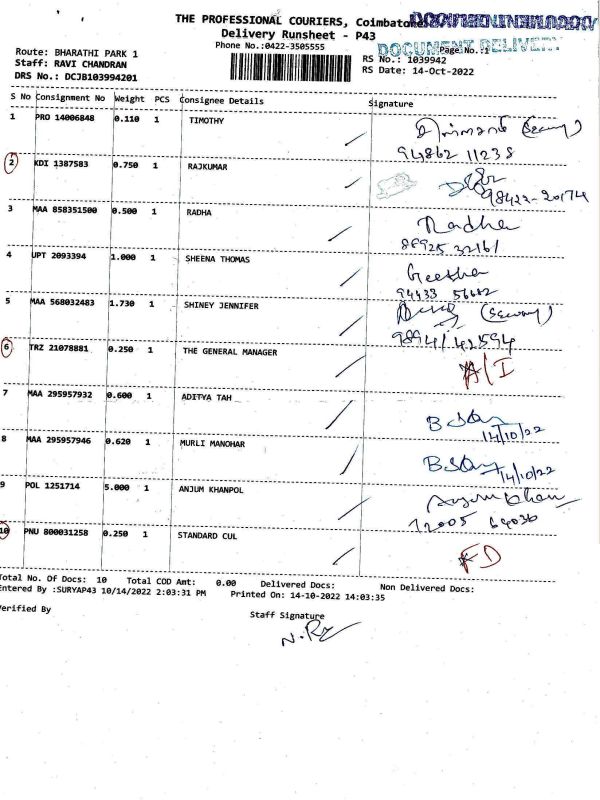 THE PROFESSIONAL COURIERS, Coimbatore
Delivery Runsheet - P43
Phone No.:0422-3505555
DOCUMENT DELIVERY
Page No.:1
Route: BHARATHI PARK 1
Staff: RAVI CHANDRAN
DRS No.: DCJB103994201
RS No.: 1039942
RS Date: 14-Oct-2022
S No Consignment No Weight PCS Consignee Details Signature
1 PRO 14006848 0.110 1 TIMOTHY
94862 11238
2 KDI 1387583 0.750 1 RAJKUMAR
98422-20174
3 MAA 858351500 0.500 1 RADHA Radha
86925 32161
4 UPT 2093394 1.000 1 SHEENA THOMAS Geetha
94433 56682
5 MAA 568032483 1.730 1 SHINEY JENNIFER
98941 42594
6 TRZ 21078881 0.250 1 THE GENERAL MANAGER A/I
7 MAA 295957932 0.600 1 ADITYA TAH
14/10/22
8 MAA 295957946 0.620 1 MURLI MANOHAR
14/10/22
9 POL 1251714 5.000 1 ANJUM KHANPOL Anjum Khan
72005 69036
10 PNU 800031258 0.250 1 STANDARD CUL FD
Total No. Of Docs: 10 Total COD Amt: 0.00 Delivered Docs: Non Delivered Docs:
Entered By :SURYAP43 10/14/2022 2:03:31 PM Printed On: 14-10-2022 14:03:35
Verified By
Staff Signature